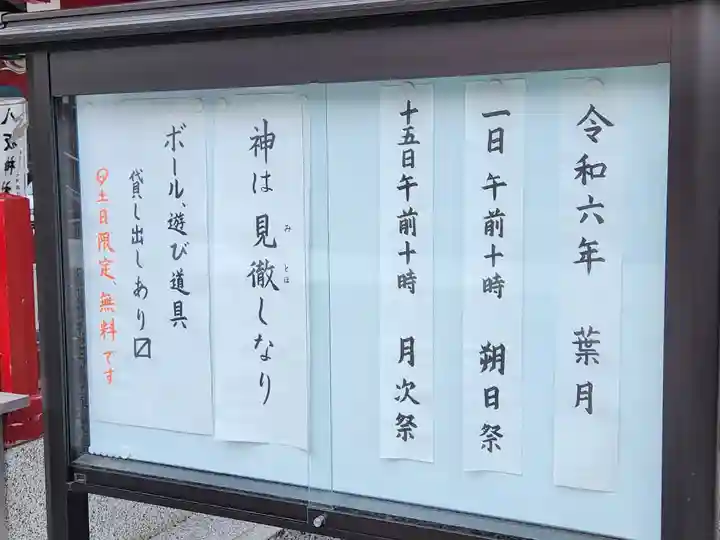 令和六年 葉月
一日午前十時 朔日祭
十五日午前十時 月次祭
神は見徹しなり
みとほ
ボール、遊び道具
貸し出しあり〼
土日限定、無料です